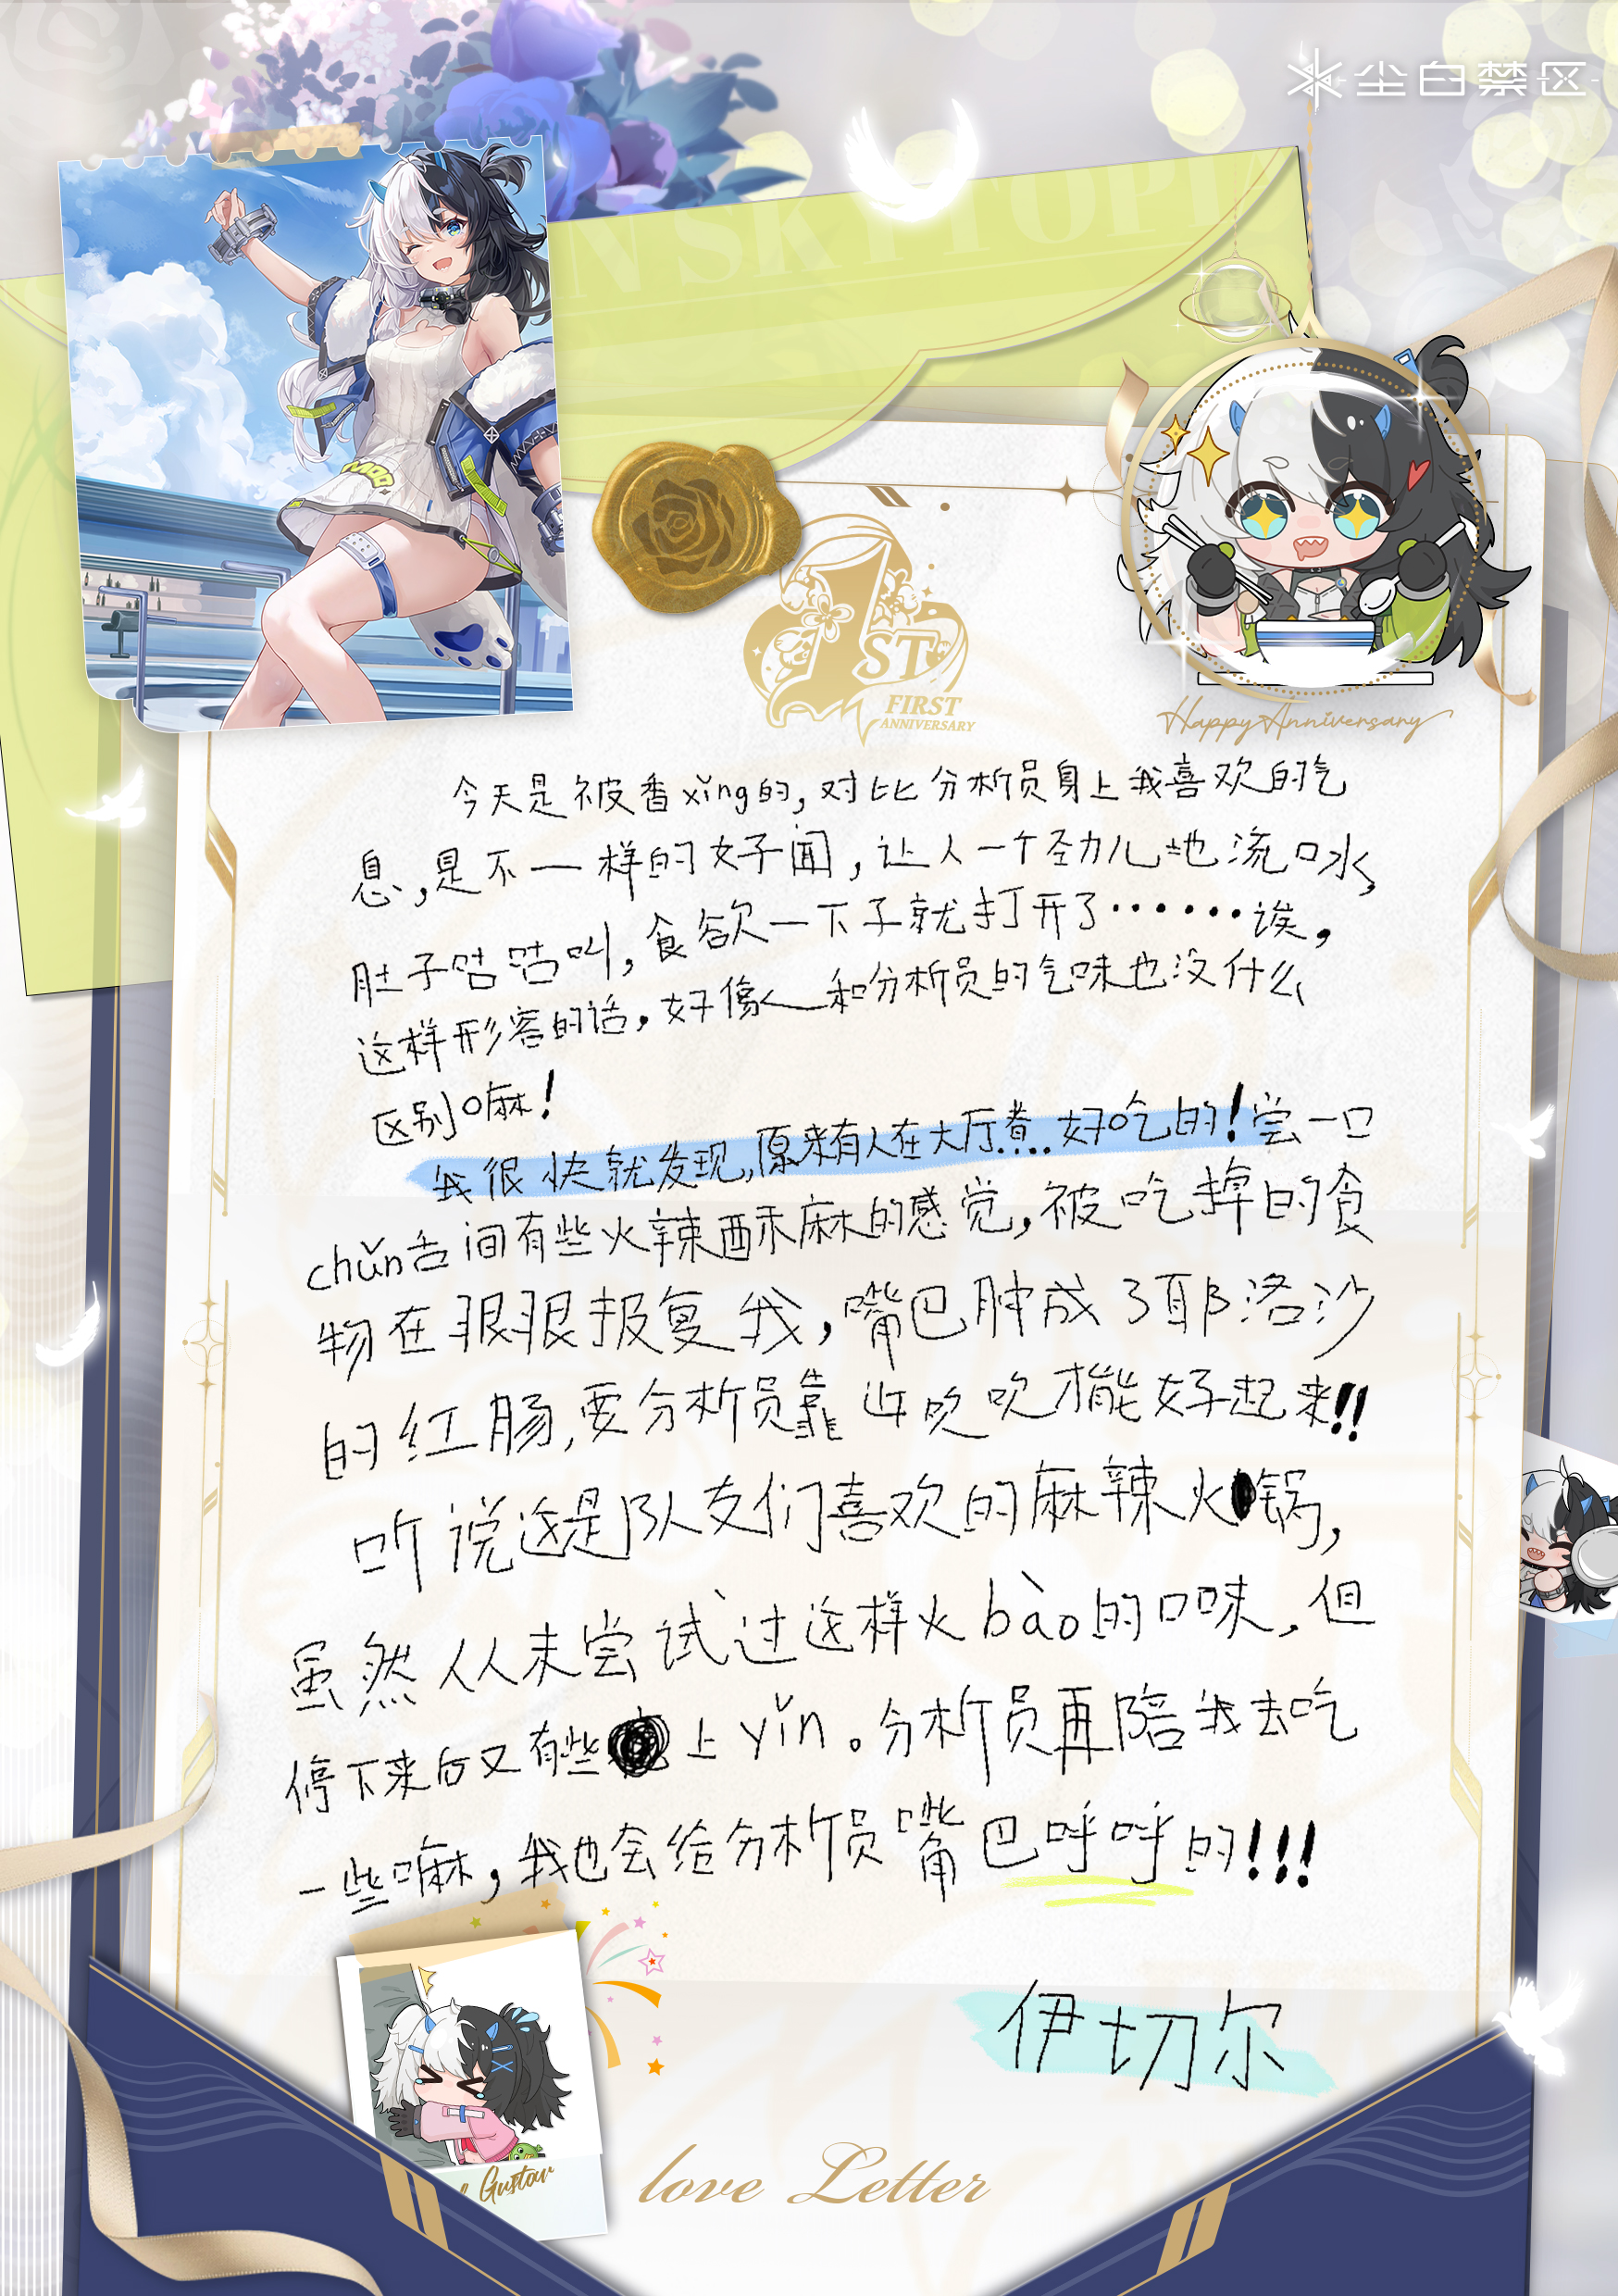 尘白禁区
IN SKYTOPI
1ST
FIRST
ANNIVERSARY
Happy Anniversary
今天是被香xǐng的，对比分析员身上我喜欢的气
息，是不一样的好闻，让人一个劲儿地流口水，
肚子咕咕叫，食欲一下子就打开了······诶，
这样形容的话，好像和分析员的气味也没什么
区别嘛！
我很快就发现，原来有人在大厅煮....好吃的！尝一口
chǔn舌间有些火辣酥麻的感觉，被吃掉的食
物在狠狠报复我，嘴巴肿成了耶洛沙
的红肠，要分析员靠近吹吹才能好起来!!
听说这是队友们喜欢的麻辣火锅，
虽然从未尝试过这样火bào的口味，但
停下来后又有些上yǐn。分析员再陪我去吃
一些嘛，我也会给分析员嘴巴呼呼的!!!
伊切尔
Gustav
love Letter